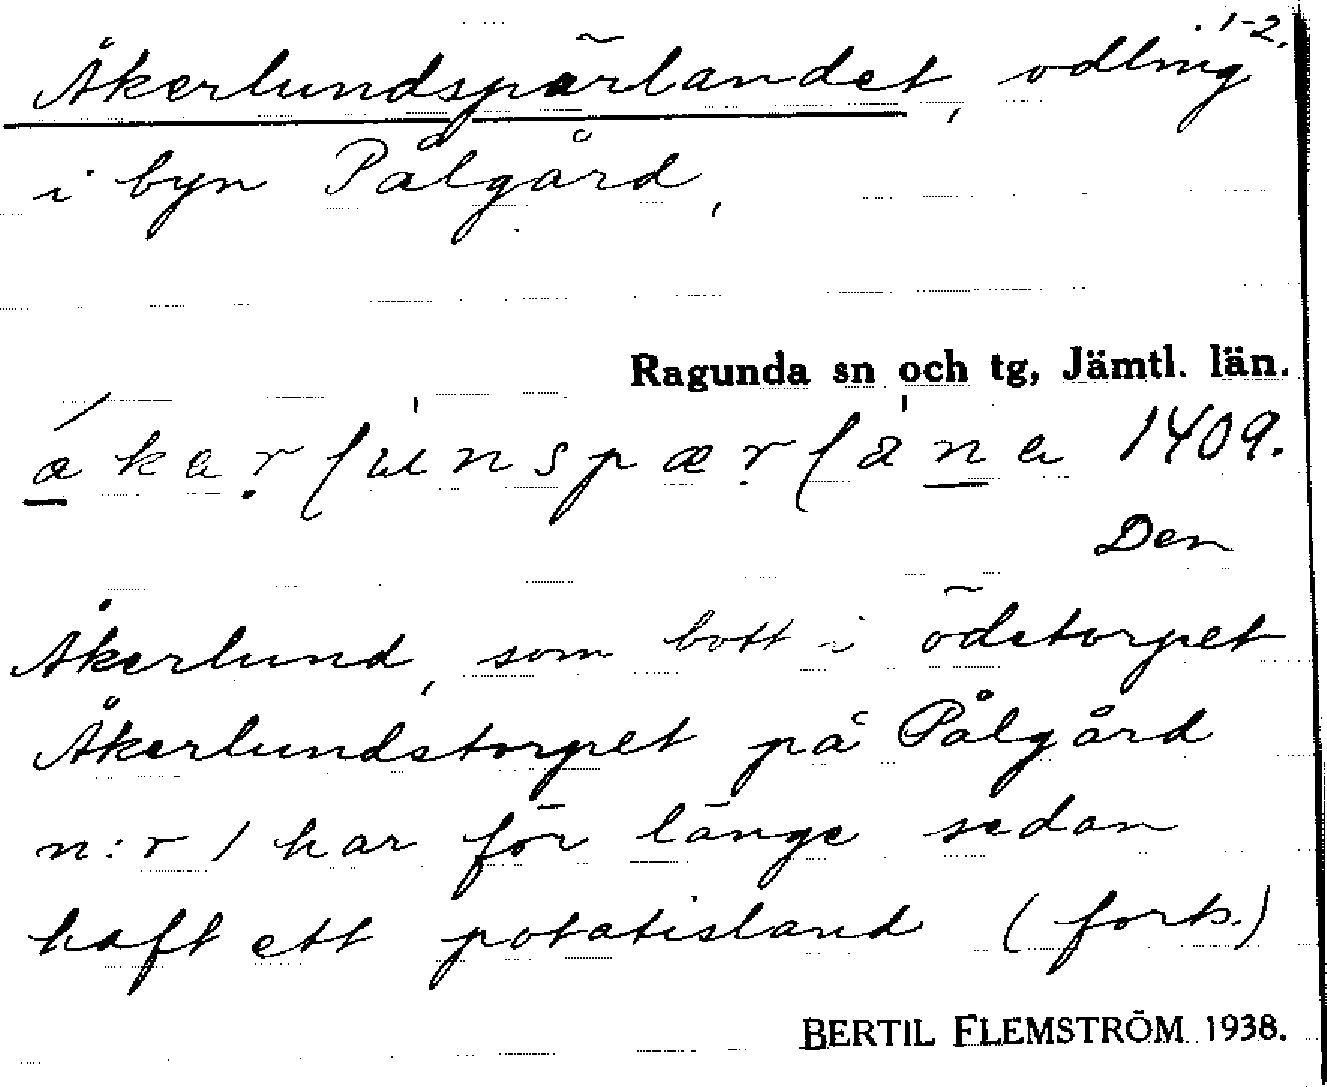 1-2.
Åkerlundspärlandet, odling
i byn Pålgård,
Ragunda sn och tg, Jämtl. län.
1409.
Den
Åkerlund, som bott i ödetorpet
Åkerlundstorpet på Pålgård
n:r 1 har för länge sedan
haft ett potatisland (forts.)
BERTIL FLEMSTRÖM 1938.